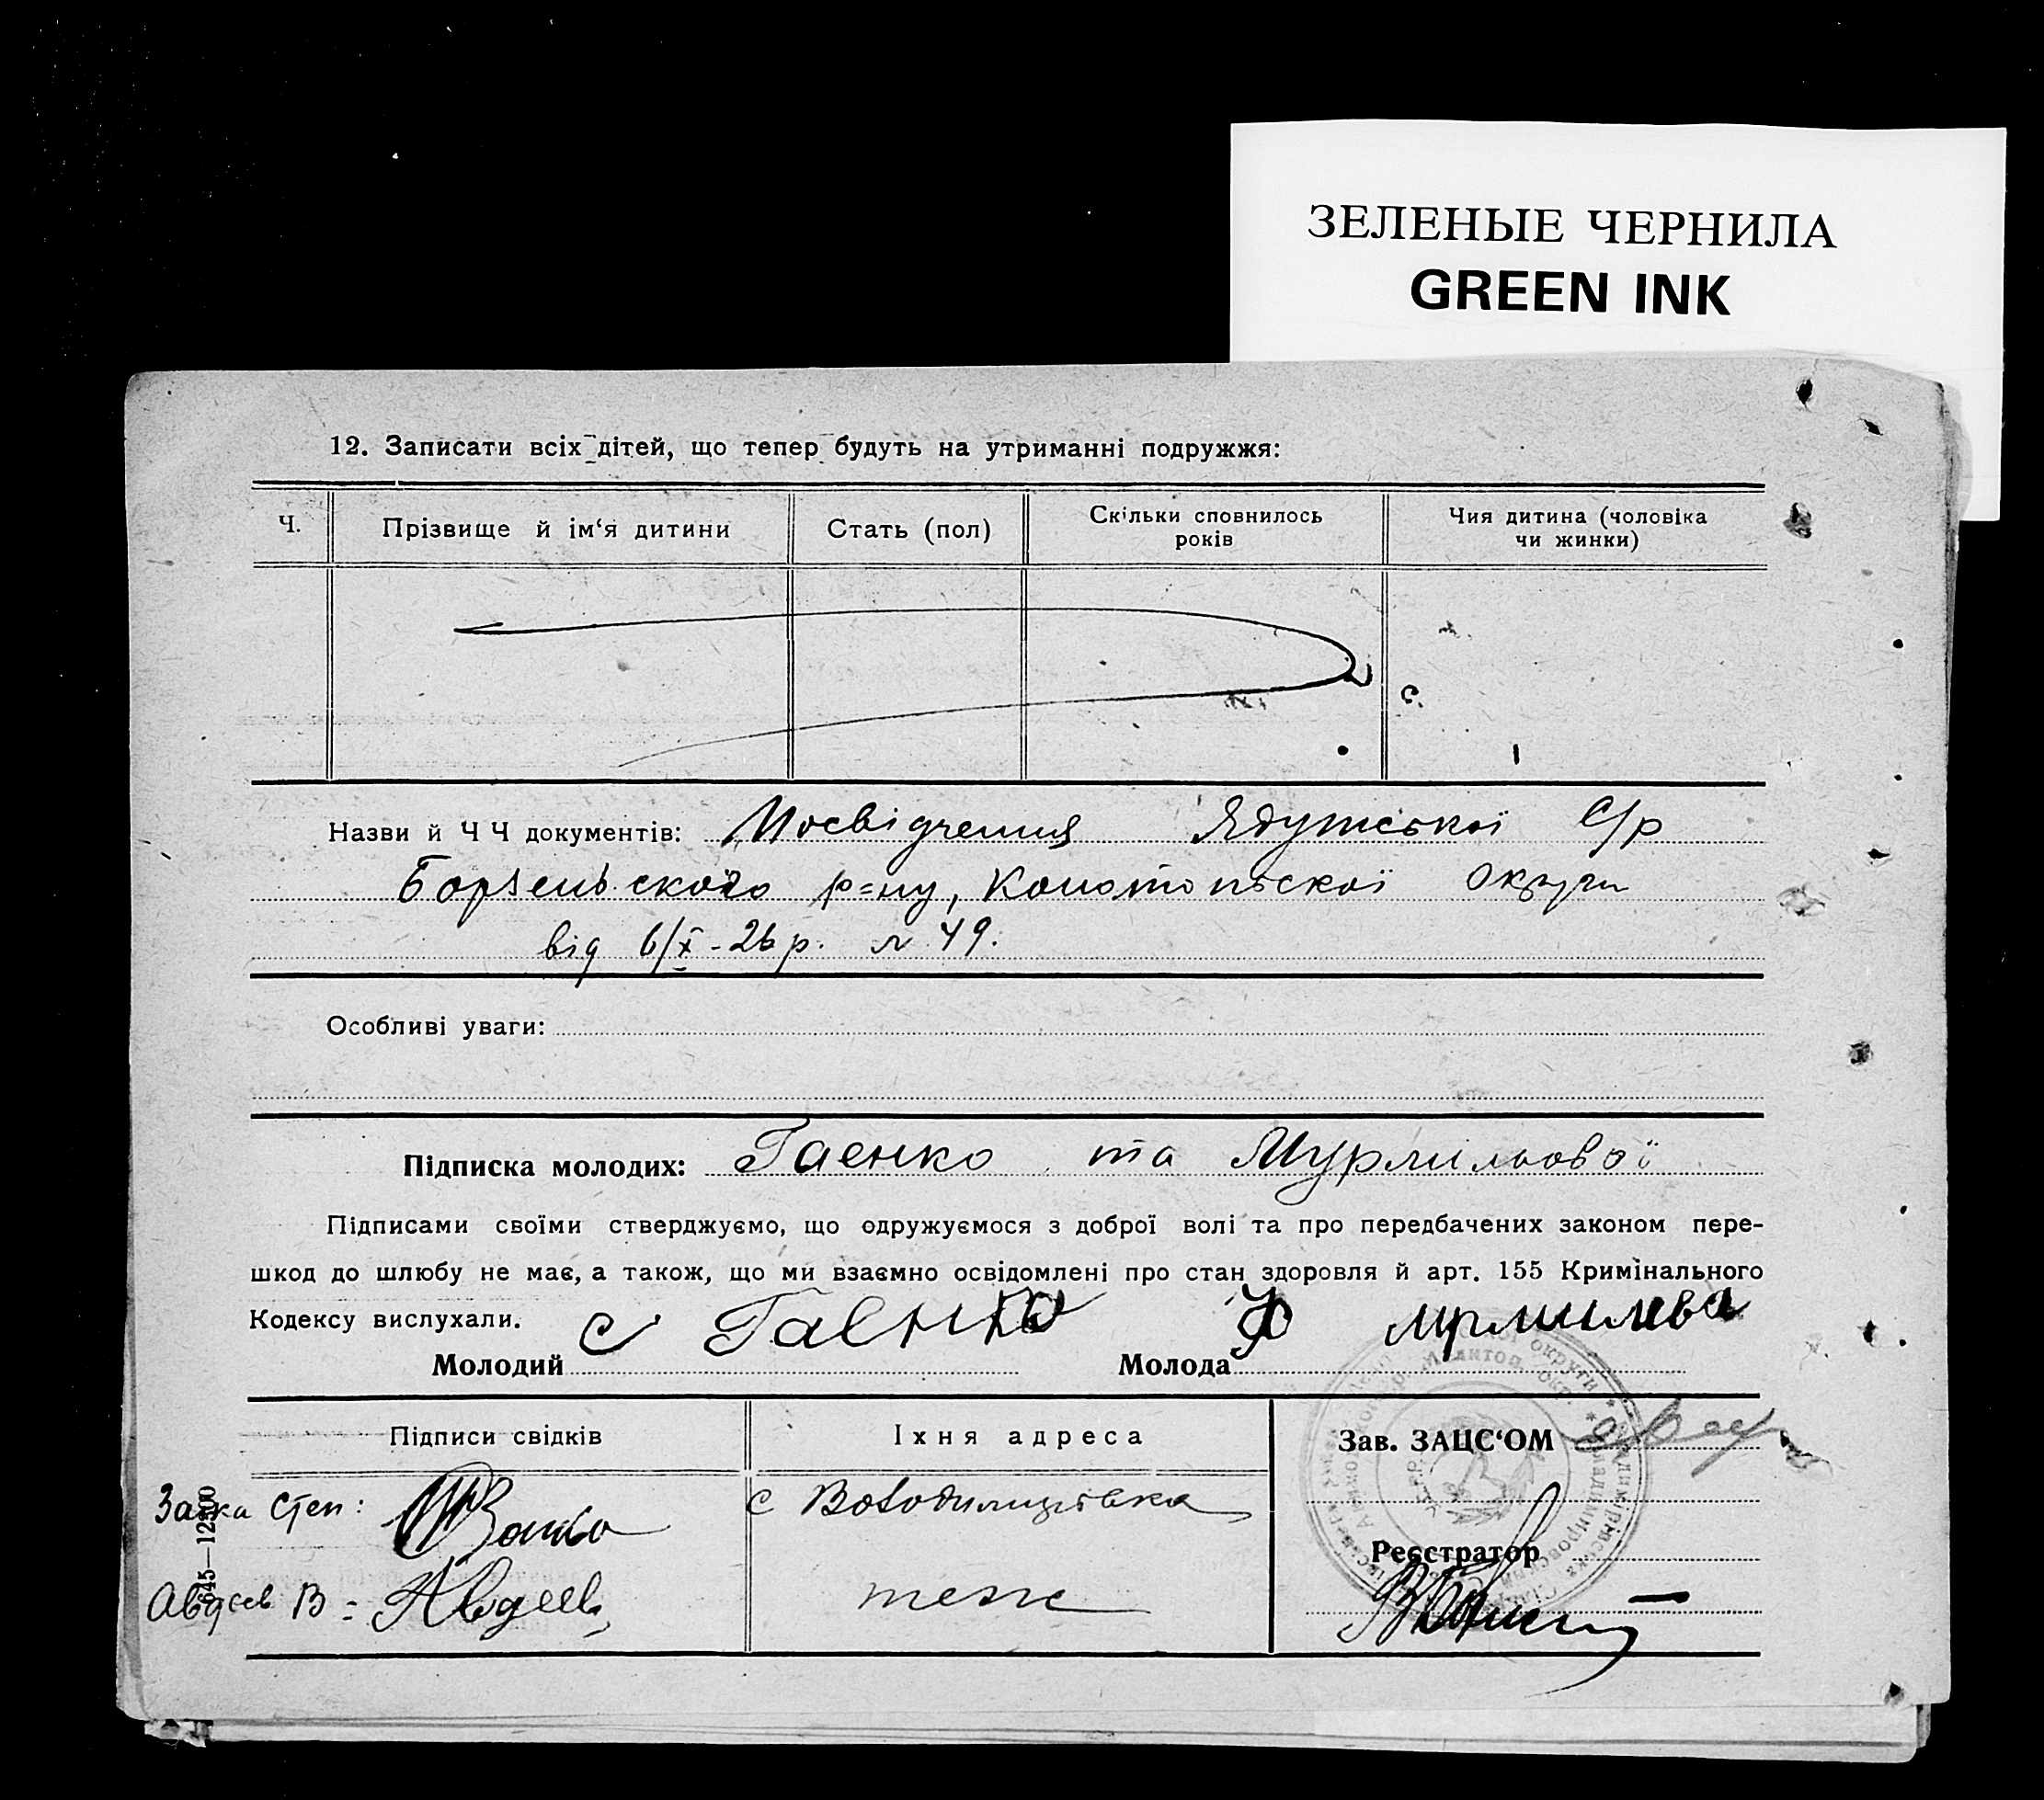 ЗЕЛЕНЫЕ ЧЕРНИЛА
GREEN INK
12. Записати всіх дітей, що тепер будуть на утриманні подружжя:
Ч.
Прізвище й ім‘я дитини
Стать (пол)
Скільки сповнилось
років
Чия дитина (чоловіка
чи жинки)
Назви й Ч Ч документів: Посвідчення Ядутської С/р
Борзенського р=ну, Конотопської Округи
від 6/X-26 р. № 49.
Особливі уваги:
Підписка молодих: Гаенко та Мурмильової
Підписами своїми стверджуємо, що одружуємося з доброї волі та про передбачених законом пере-
шкод до шлюбу не має, а також, що ми взаємно освідомлені про стан здоровля й арт. 155 Кримінального
Кодексу вислухали.
Молодий с Гаенко Молода Ф
Підписи свідків
Їхня адреса
Зав. ЗАЦС‘ОМ
Заика Степ: Заика
с
Реєстратор
Авдеев В = Авдеев
теже
645—12500